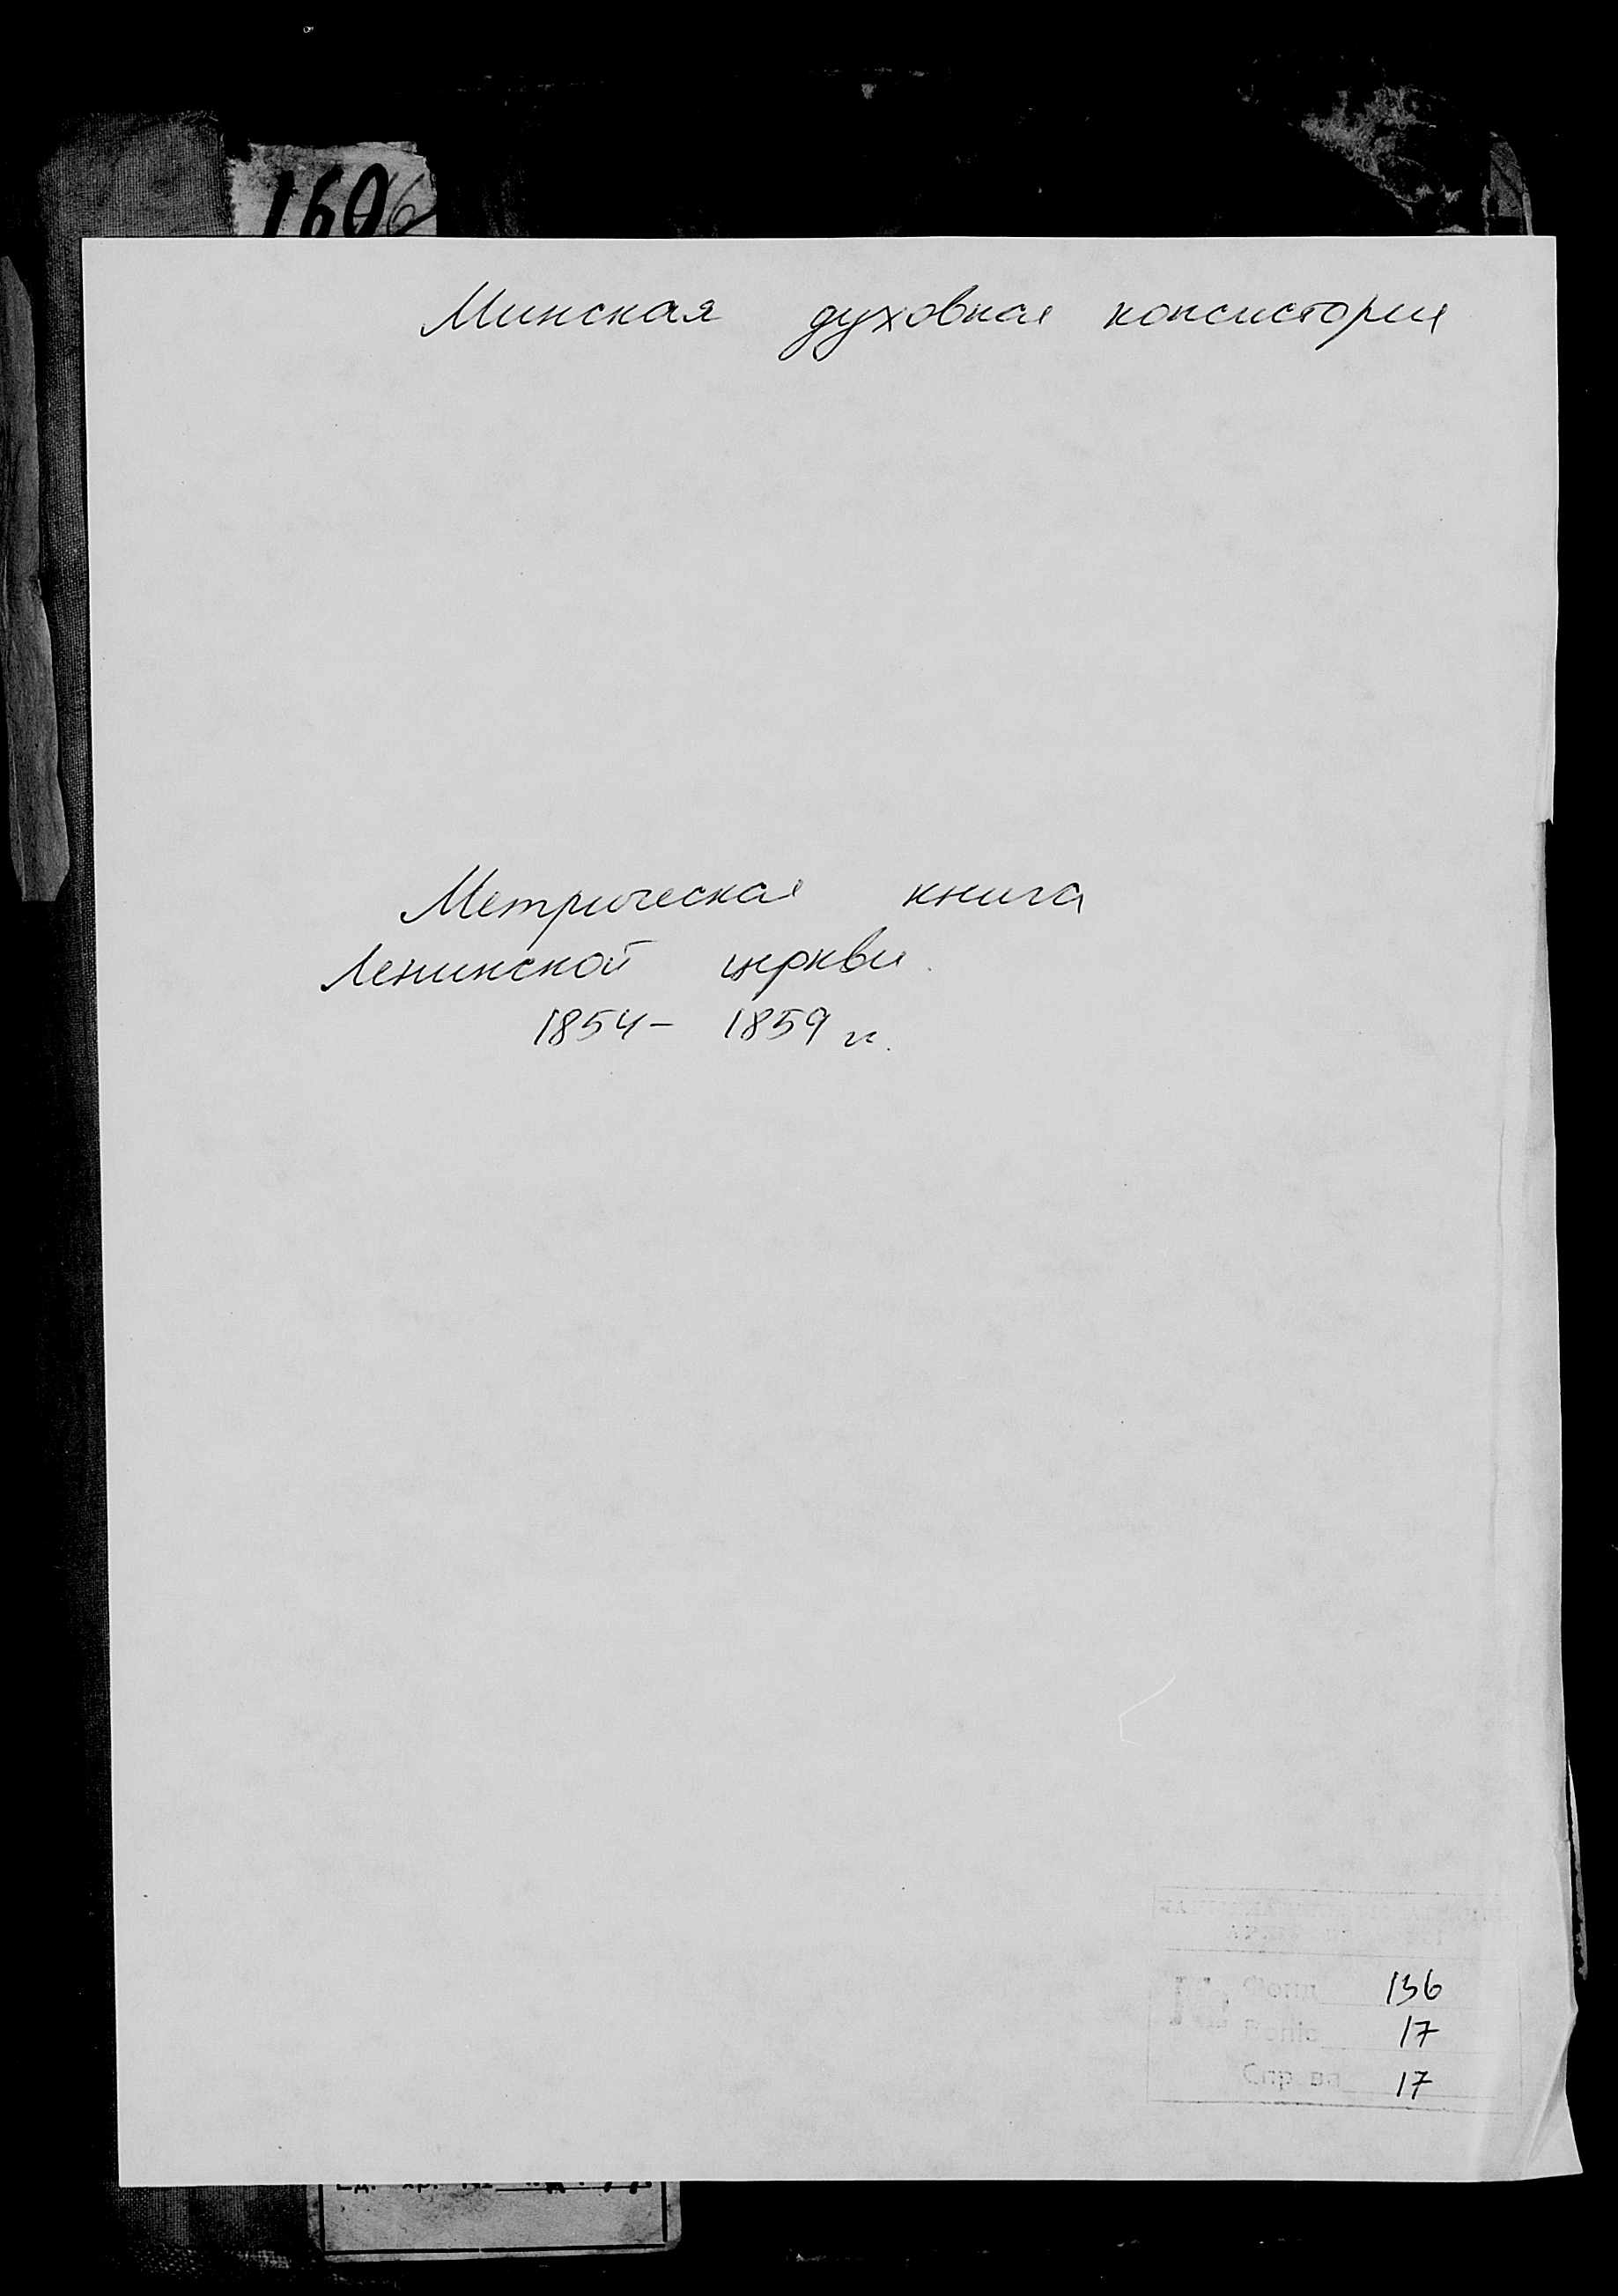 160
Минская духовная консистория
Метрическая книга
Ленинской церкви
1854 - 1859 гг.
Фонд 136
Вопіс 17
Справа 17
Ед. хр. №